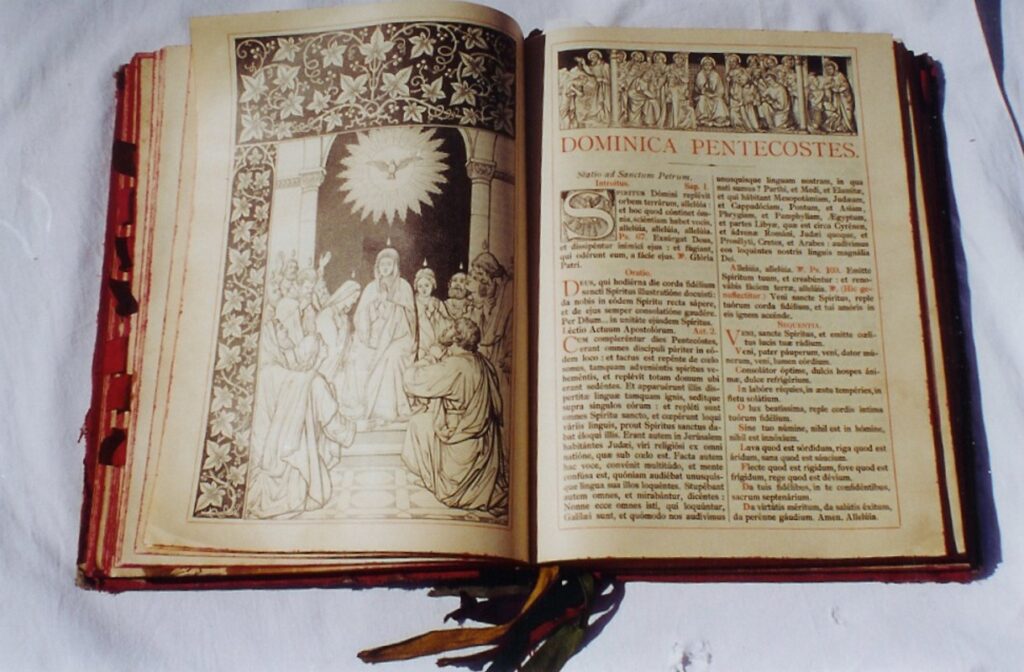 DOMINICA PENTECOSTES.
Statio ad Sanctum Petrum.
Introitus. Sap. 1.
SPIRITUS Dómini replévit
orbem terrárum, allelúia :
et hoc quod cóntinet óm-
nia, sciéntiam habet vocis,
allelúia, allelúia, allelúia.
Ps. 67. Exsúrgat Deus,
et dissipéntur inimíci ejus : et fúgiant,
qui odérunt eum, a fácie ejus. ℣. Glória
Patri.
Oratio.
DEUS, qui hodiérna die corda fidélium
sancti Spíritus illustratióne docuísti :
da nobis in eódem Spíritu recta sápere,
et de ejus semper consolatióne gaudére.
Per Dñum... in unitáte ejúsdem Spíritus.
Léctio Actuum Apostolórum. Act. 2.
CUM compleréntur dies Pentecóstes,
erant omnes discípuli páriter in eó-
dem loco : et factus est repénte de cœlo
sonus, tamquam adveniéntis spíritus ve-
heméntis, et replévit totam domum ubi
erant sedéntes. Et apparuérunt illis dis-
pertítæ linguæ tamquam ignis, sedítque
supra síngulos eórum : et repléti sunt
omnes Spíritu sancto, et cœpérunt loqui
váriis linguis, prout Spíritus sanctus da-
bat éloqui illis. Erant autem in Jerúsalem
habitántes Judæi, viri religiósi ex omni
natióne, quæ sub cœlo est. Facta autem
hac voce, convénit multitúdo, et mente
confúsa est, quóniam audiébat unusquís-
que lingua sua illos loquéntes. Stupébant
autem omnes, et mirabántur, dicéntes :
Nonne ecce omnes isti, qui loquúntur,
Galilǽi sunt, et quómodo nos audívimus
unusquísque linguam nostram, in qua
nati sumus? Parthi, et Medi, et Ælamítæ,
et qui hábitant Mesopotámiam, Judæam,
et Cappadóciam, Pontum, et Asiam,
Phrýgiam, et Pamphýliam, Ægýptum,
et partes Líbyæ, quæ est circa Cyrénen,
et ádvenæ Románi, Judæi quoque, et
Prosélyti, Cretes, et Arabes : audívimus
eos loquéntes nostris linguis magnália
Dei.
Allelúia, allelúia. ℣. Ps. 103. Emítte
Spíritum tuum, et creabúntur : et reno-
vábis fáciem terræ, allelúia. ℣. (Hic ge-
nuflectitur) Veni sancte Spíritus, reple
tuórum corda fidélium, et tui amóris in
eis ignem accénde.
SEQUENTIA.
VENI, sancte Spíritus, et emítte cœli-
tus lucis tuæ rádium.
Veni, pater páuperum, veni, dator mú-
nerum, veni, lumen córdium.
Consolátor óptime, dulcis hospes áni-
mæ, dulce refrigérium.
In labóre réquies, in æstu tempéries, in
fletu solátium.
O lux beatíssima, reple cordis íntima
tuórum fidélium.
Sine tuo númine, nihil est in hómine,
nihil est innóxium.
Lava quod est sórdidum, riga quod est
áridum, sana quod est sáucium.
Flecte quod est rígidum, fove quod est
frígidum, rege quod est dévium.
Da tuis fidélibus, in te confidéntibus,
sacrum septenárium.
Da virtútis méritum, da salútis éxitum,
da perénne gáudium. Amen. Allelúia.